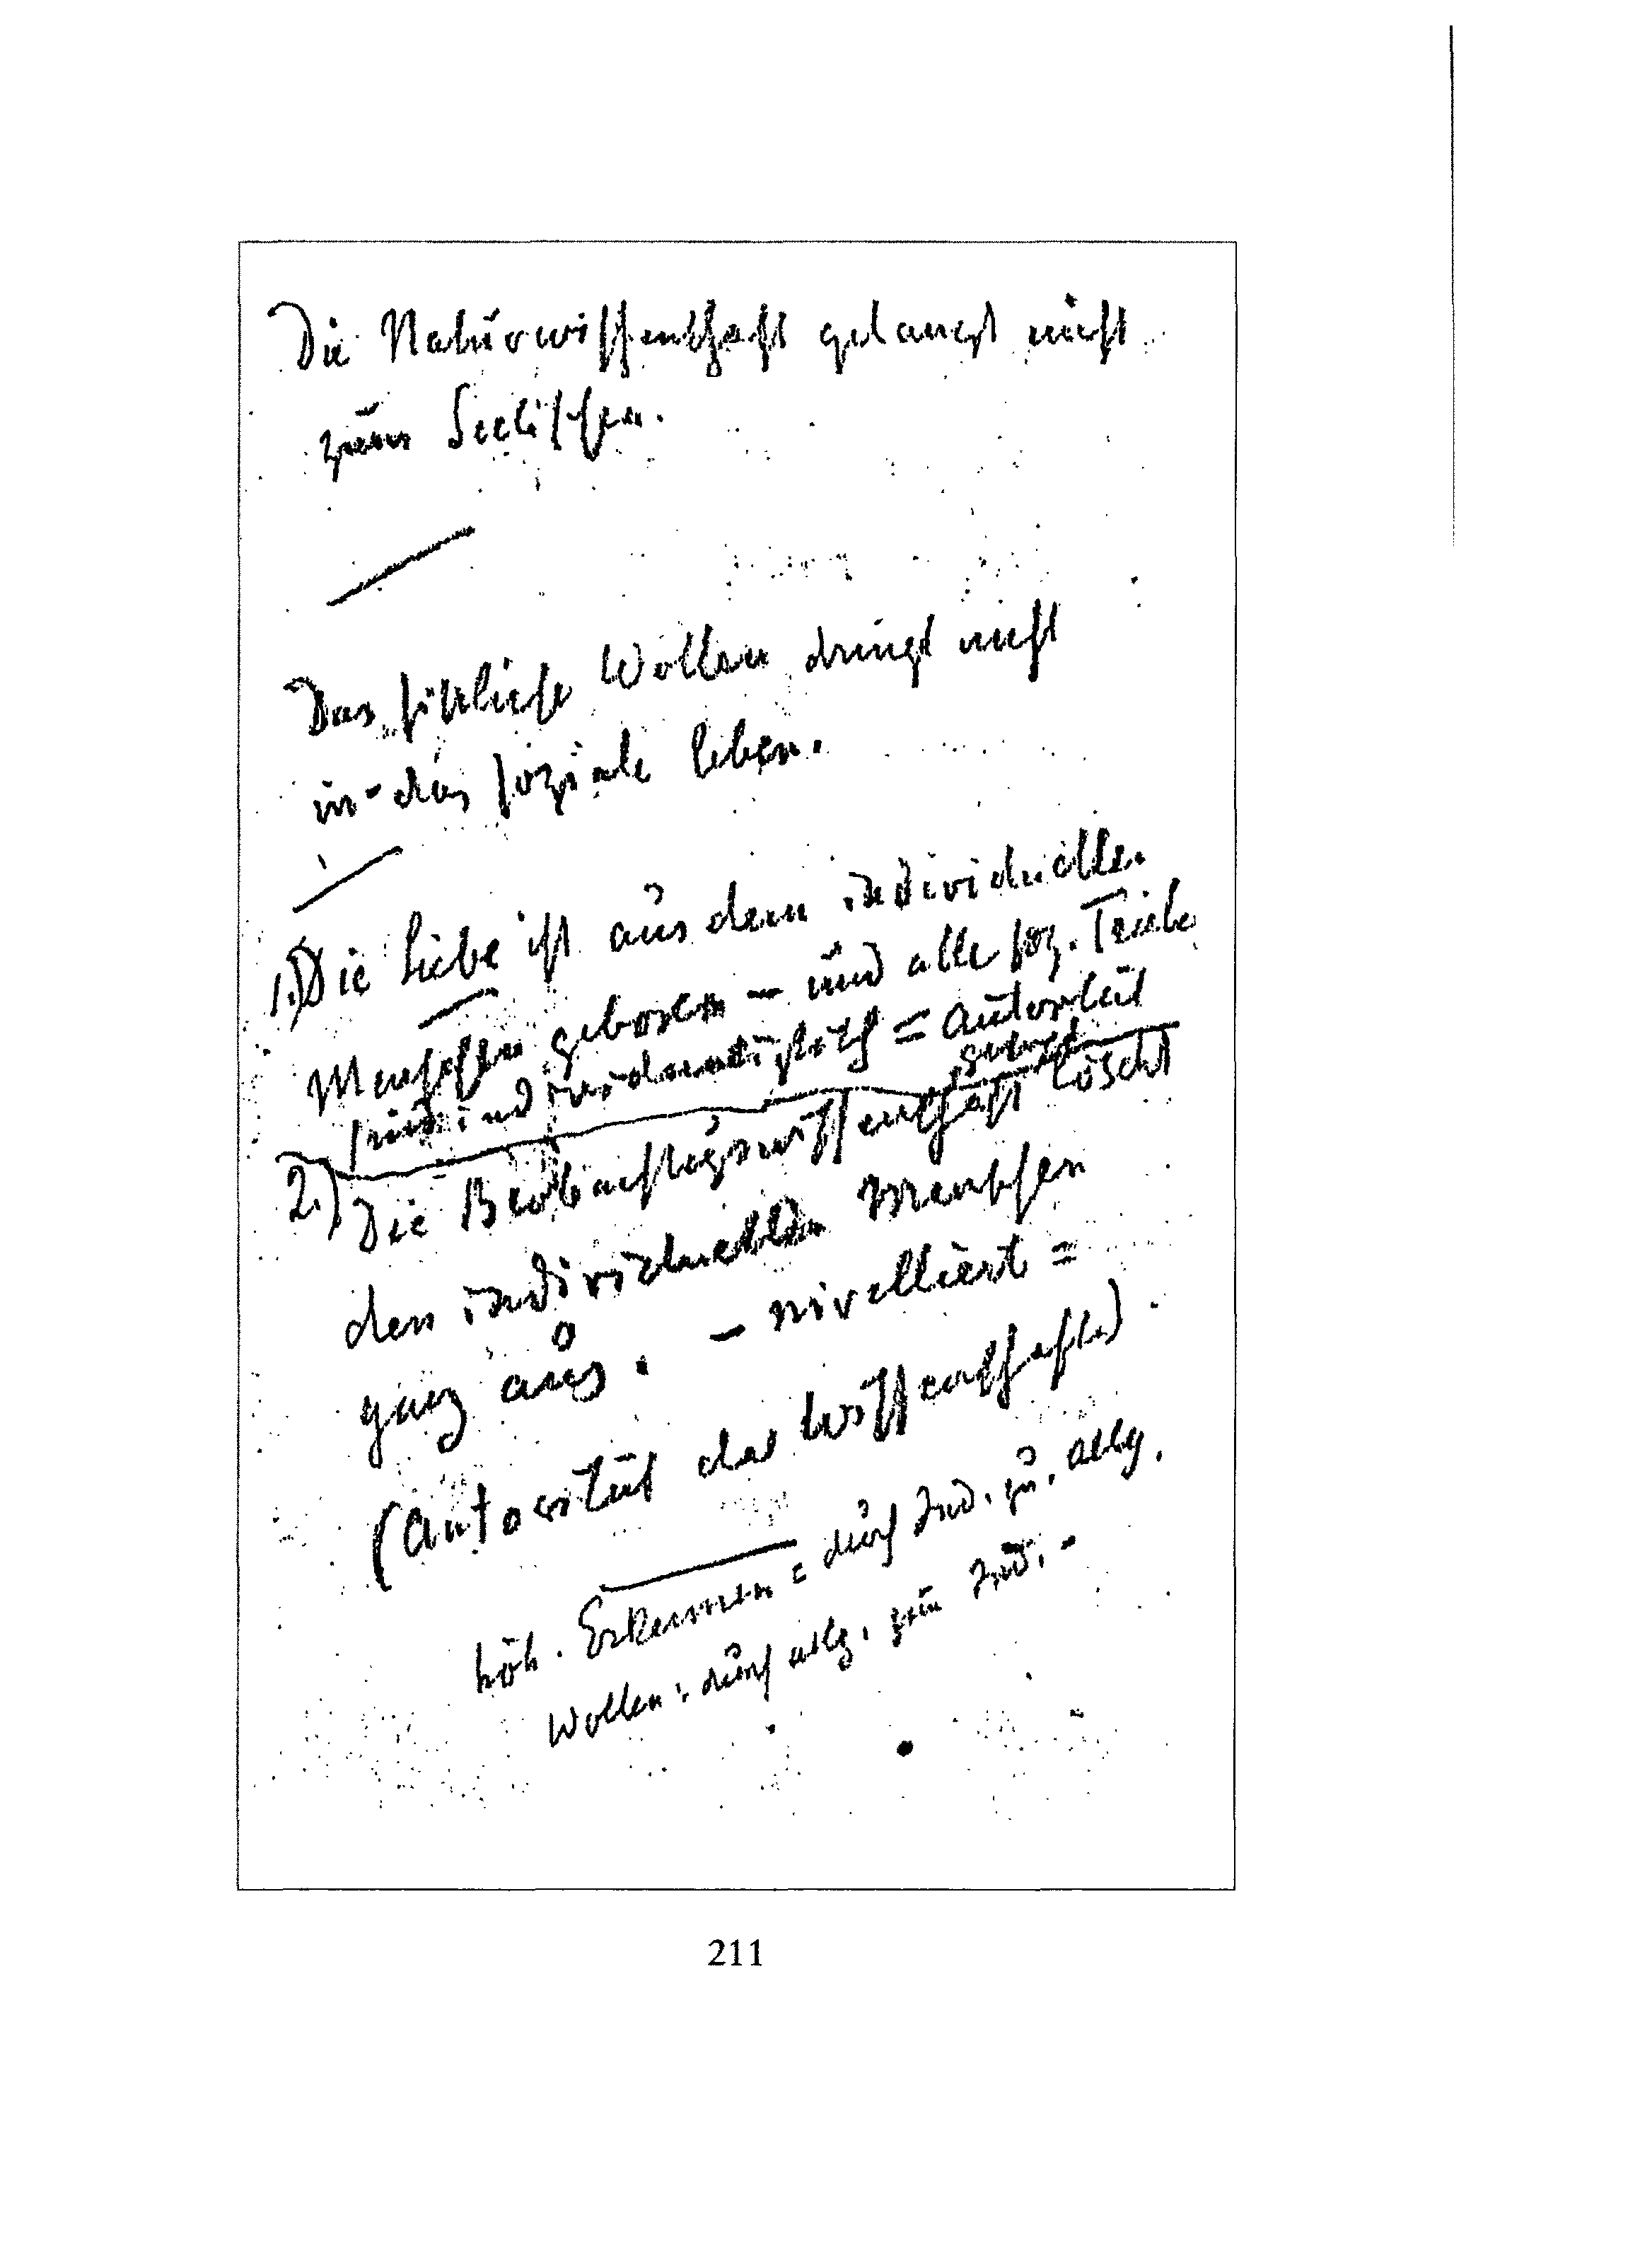 Die Naturwissenschaft gelangt nicht
zum Seelischen.
Das sittliche Wollen dringt nicht
in das soziale Leben.
1.) Die Liebe ist aus dem individuellen
Menschen geboren – und alle soz. Triebe
sind individualistisch = Autorität
2.) Die Beobachtungswissenschaft löscht
den individuellen Menschen
ganz aus. – nivelliert =
(Autorität der Wissenschaft)
höh. Erkennen = durch Ind. zu. allg.
Wollen : durch allg. zum Ind. –
211